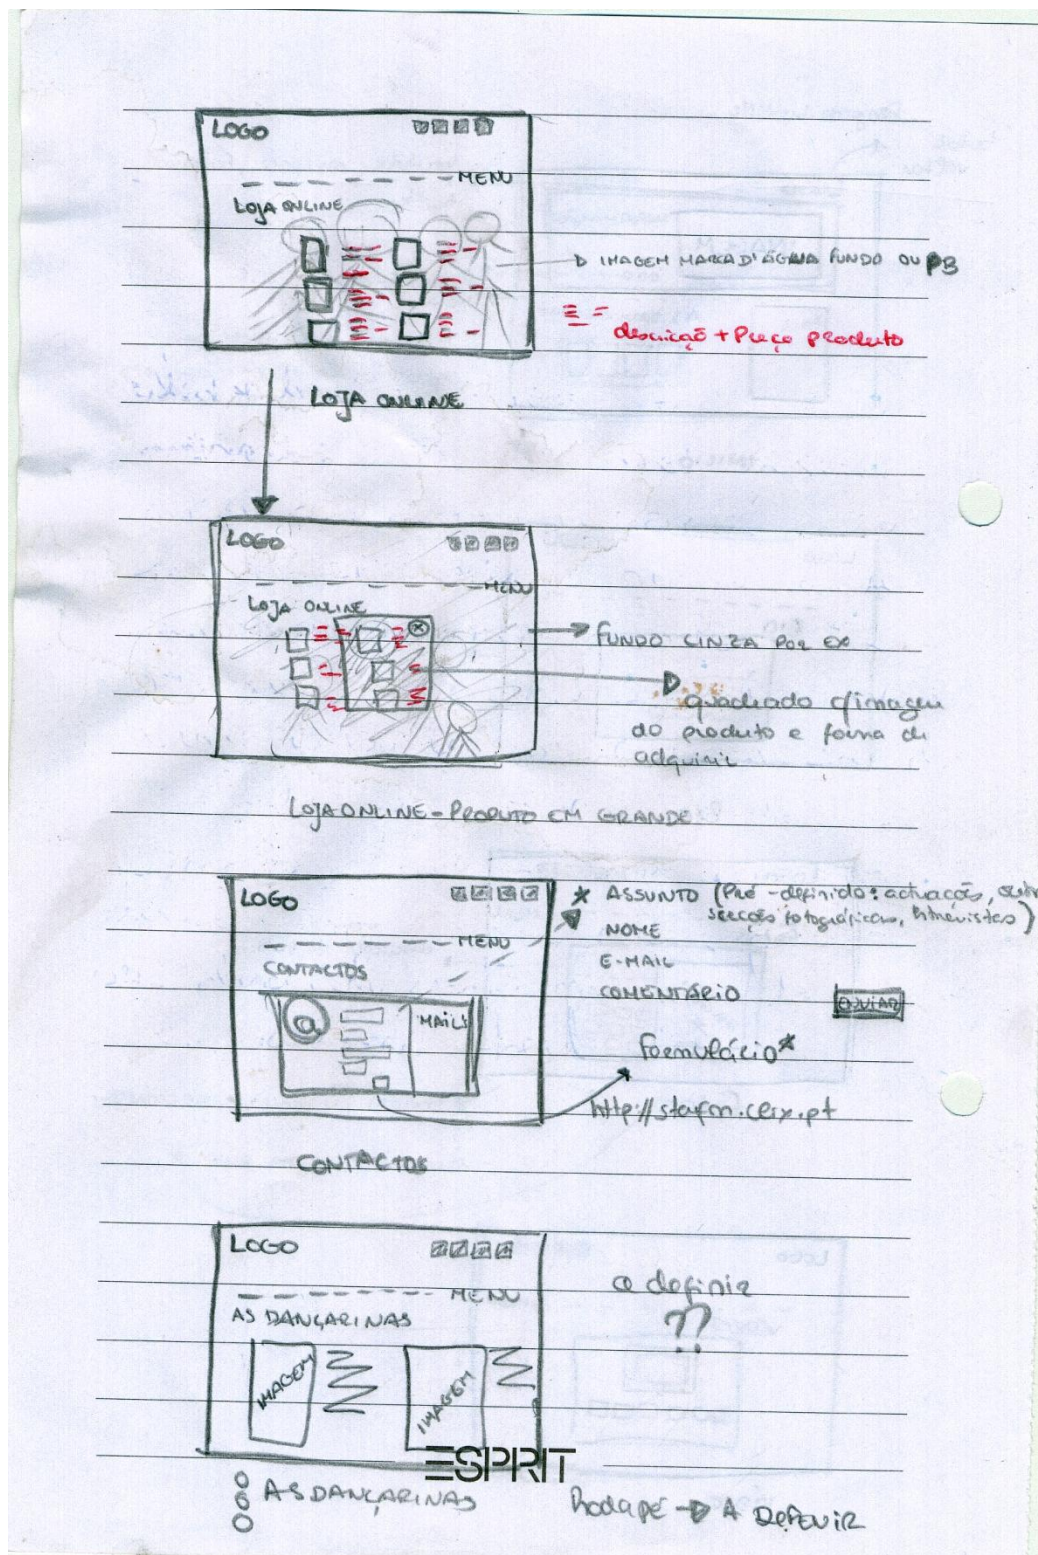 LOGO
MENU
LOJA ONLINE
IMAGEM MARCA D'ÁGUA FUNDO OU PB
descrição + Preço produto
LOJA ONLINE
LOGO
MENU
LOJA ONLINE
FUNDO CINZA POR EX
quadrado c/imagem
do produto e forma de
adquirir
LOJA ONLINE - PRODUTO EM GRANDE
LOGO
* ASSUNTO (Pré-definido: actuação,
secções fotográficas, Entrevistas)
MENU
NOME
CONTACTOS
E-MAIL
COMENTÁRIO
ENVIAR
@
MAILS
formulário*
CONTACTOS
LOGO
MENU
a definir
??
AS DANÇARINAS
IMAGEM
IMAGEM
ESPRIT
AS DANÇARINAS
Rodapé → A DEFENIR